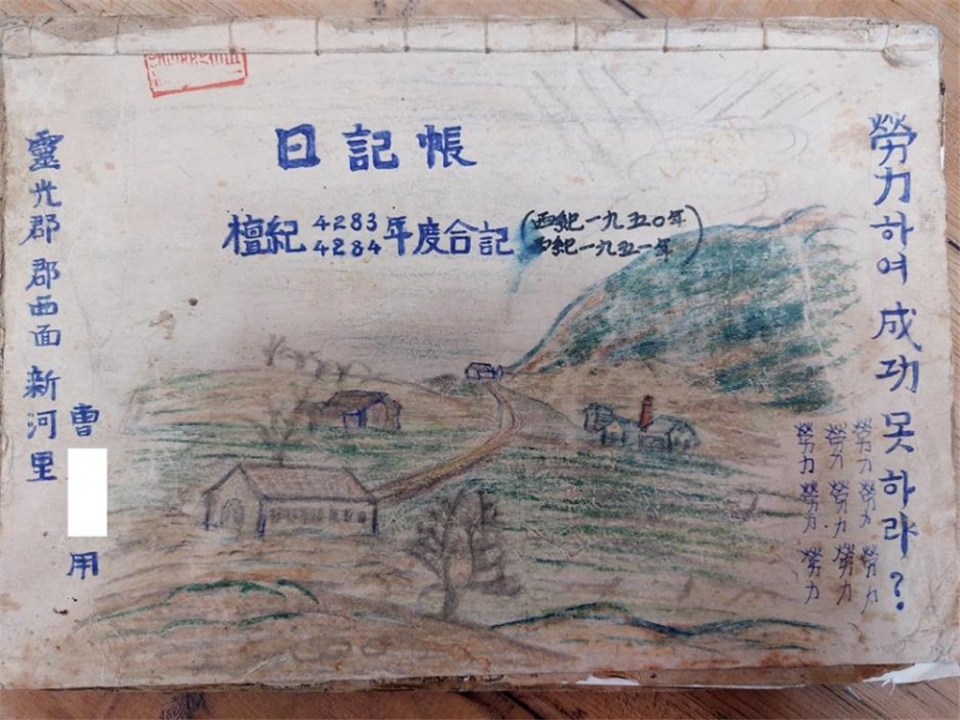 日記帳
檀紀 4283 年度合記 (西紀一九五〇年)
4284 西紀一九五一年
勞力하여 成功 못하랴?
勞力 勞力 勞力
勞力 勞力 勞力
勞力 勞力 勞力
靈光郡 郡西面 新河里
曺 用